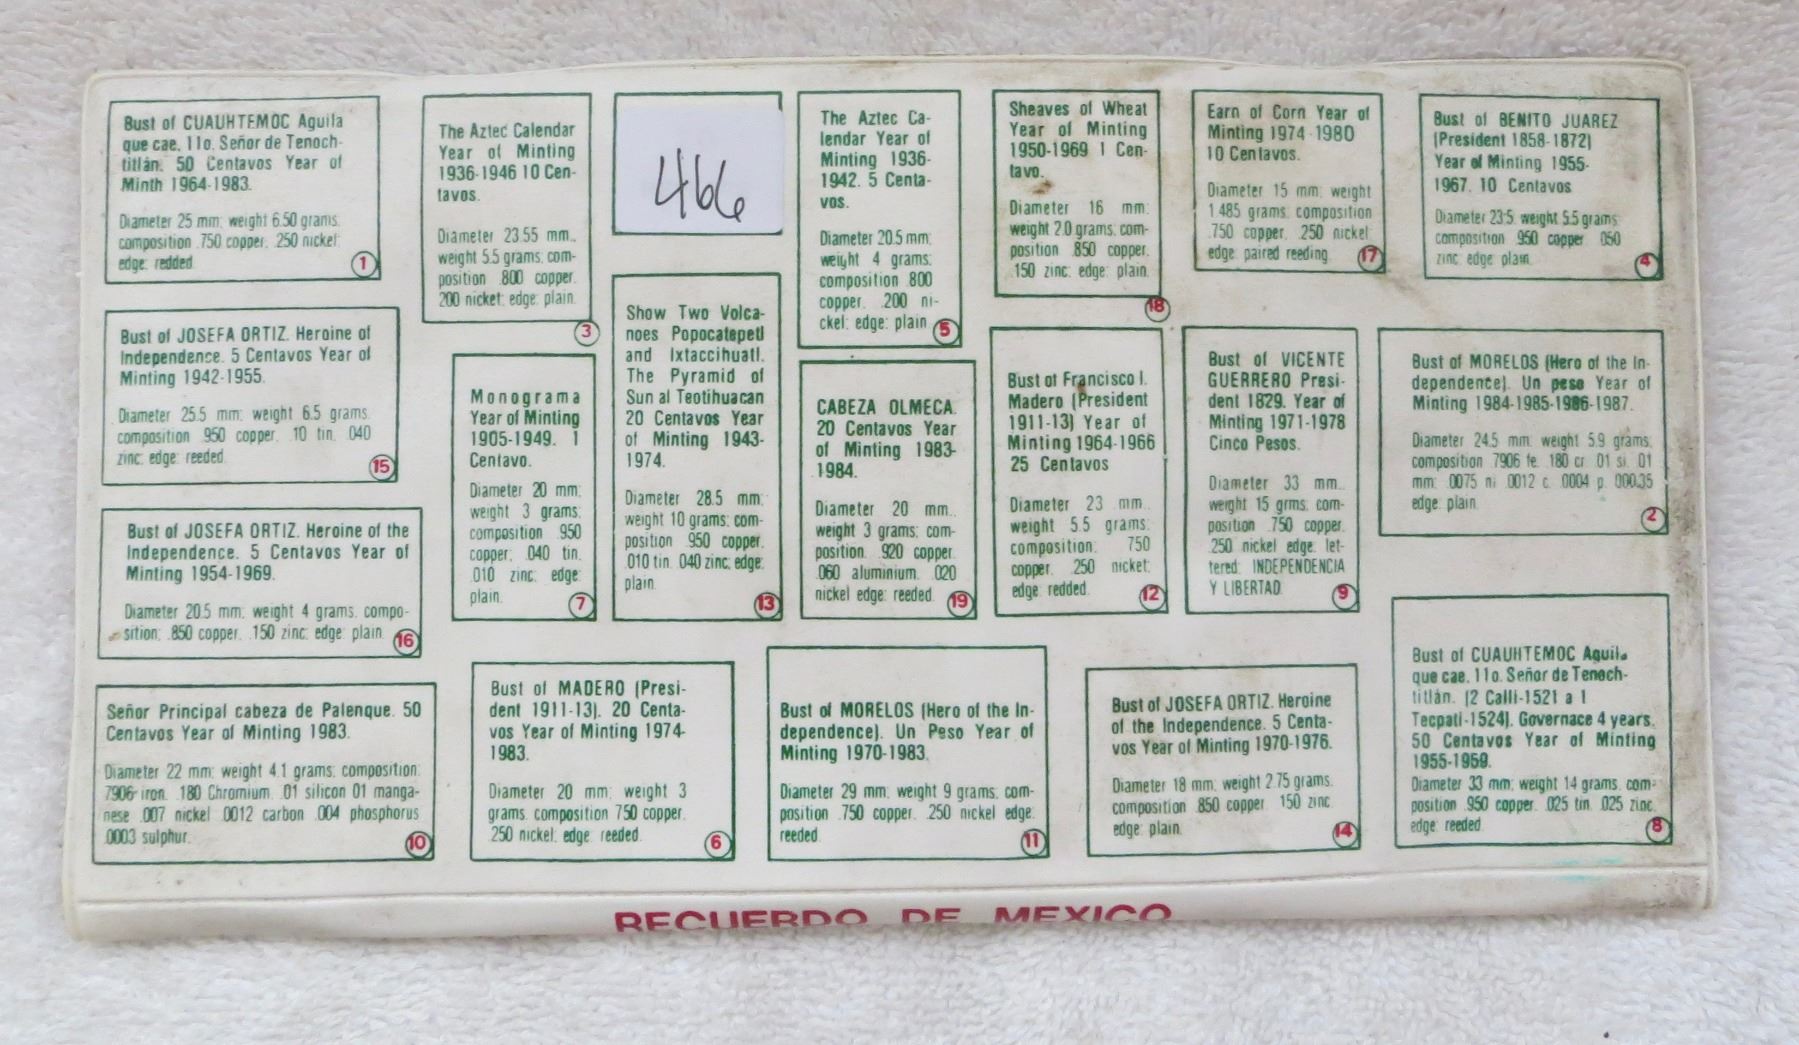 Bust of CUAUHTEMOC Aguila
que cae. 11o. Señor de Tenoch-
titlán. 50 Centavos Year of
Minth 1964-1983.
Diameter 25 mm; weight 6.50 grams.
composition .750 copper; .250 nickel;
edge: redded
1
The Aztec Calendar
Year of Minting
1936-1946 10 Cen-
tavos.
Diameter 23.55 mm..
weight 5.5 grams; com-
position .800 copper.
200 nicket; edge: plain.
3
466
The Aztec Ca-
lendar Year of
Minting 1936-
1942. 5 Centa-
vos.
Diameter 20.5 mm;
weight 4 grams;
composition .800
copper. .200 ni-
ckel; edge: plain
5
Sheaves of Wheat
Year of Minting
1950-1969 1 Cen-
tavo.
Diameter 16 mm;
weight 2.0 grams; com-
position .850 copper.
.150 zinc; edge: plain.
18
Earn of Corn Year of
Minting 1974-1980
10 Centavos.
Diameter 15 mm; weight
1.485 grams; composition
.750 copper. .250 nickel
edge: paired reeding.
17
Bust of BENITO JUAREZ
(President 1858-1872)
Year of Minting 1955-
1967. 10 Centavos
Diameter 23.5. weight 5.5 grams;
composition .950 copper .050
zinc; edge plain.
4
Bust of JOSEFA ORTIZ. Heroine of
Independence. 5 Centavos Year of
Minting 1942-1955.
Diameter 25.5 mm; weight 6.5 grams.
composition .950 copper. .10 tin. .040
zinc; edge: reeded.
15
Monograma
Year of Minting
1905-1949. 1
Centavo.
Diameter 20 mm;
weight 3 grams;
composition .950
copper; .040 tin.
.010 zinc; edge:
plain.
7
Show Two Volca-
noes Popocatepetl
and Ixtaccihuatl.
The Pyramid of
Sun al Teotihuacan
20 Centavos Year
of Minting 1943-
1974.
Diameter 28.5 mm;
weight 10 grams; com-
position .950 copper.
.010 tin. .040 zinc; edge:
plain.
13
CABEZA OLMECA.
20 Centavos Year
of Minting 1983-
1984.
Diameter 20 mm..
weight 3 grams; com-
position. .920 copper.
.060 aluminium. .020
nickel edge: reeded.
19
Bust of Francisco I.
Madero (President
1911-13) Year of
Minting 1964-1966
25 Centavos
Diameter 23 mm..
weight 5.5 grams;
composition; 750
copper. .250 nicket;
edge: redded.
12
Bust of VICENTE
GUERRERO Presi-
dent 1829. Year of
Minting 1971-1978
Cinco Pesos.
Diameter 33 mm..
weight 15 grms; com-
position .750 copper.
.250 nickel edge: let-
tered: INDEPENDENCIA
Y LIBERTAD.
9
Bust of MORELOS (Hero of the In-
dependence). Un peso Year of
Minting 1984-1985-1986-1987.
Diameter 24.5 mm; weight 5.9 grams;
composition .7906 fe. .180 cr. .01 si. .01
mm; .0075 ni .0012 c. .0004 p. .00035
edge: plain.
2
Bust of JOSEFA ORTIZ. Heroine of the
Independence. 5 Centavos Year of
Minting 1954-1969.
Diameter 20.5 mm; weight 4 grams. compo-
sition; .850 copper. .150 zinc; edge: plain.
16
Señor Principal cabeza de Palenque. 50
Centavos Year of Minting 1983.
Diameter 22 mm; weight 4.1 grams; composition:
7906 iron. .180 Chromium. .01 silicon 01 manga-
nese .007 nickel .0012 carbon .004 phosphorus
.0003 sulphur.
10
Bust of MADERO (Presi-
dent 1911-13). 20 Centa-
vos Year of Minting 1974-
1983.
Diameter 20 mm; weight 3
grams. composition 750 copper.
.250 nickel; edge: reeded.
6
Bust of MORELOS (Hero of the In-
dependence). Un Peso Year of
Minting 1970-1983.
Diameter 29 mm; weight 9 grams; com-
position .750 copper. .250 nickel edge:
reeded
11
Bust of JOSEFA ORTIZ. Heroine
of the Independence. 5 Centa-
vos Year of Minting 1970-1976.
Diameter 18 mm; weight 2.75 grams.
composition .850 copper .150 zinc
edge: plain.
14
Bust of CUAUHTEMOC Aguila
que cae. 11o. Señor de Tenoch-
titlán. (2 Calli-1521 a 1
Tecpatl-1524). Governace 4 years.
50 Centavos Year of Minting
1955-1959.
Diameter 33 mm; weight 14 grams. com-
position .950 copper. .025 tin .025 zinc.
edge: reeded
8
RECUERDO DE MEXICO